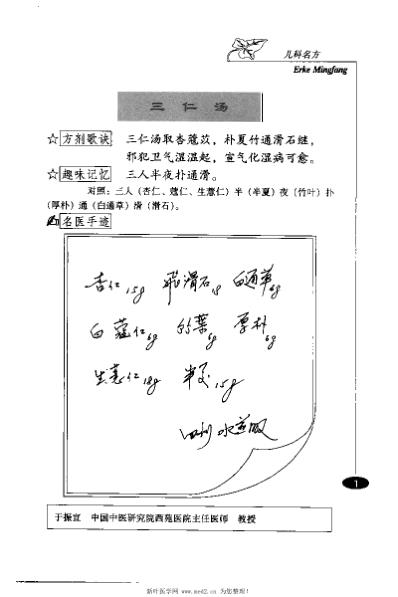 儿科名方
Erke Mingfang
三仁汤
☆方剂歌诀 三仁汤取杏蔻苡，朴夏竹通滑石继，
邪犯卫气湿温起，宣气化湿病可愈。
☆趣味记忆 三人半夜扑通滑。
对照：三人（杏仁、蔻仁、生薏仁）半（半夏）夜（竹叶）扑
（厚朴）通（白通草）滑（滑石）。
名医手迹
杏仁15g 飞滑石 白通草6g
白蔻仁6g 竹葉6g 厚朴6g
生薏仁18g 半夏15g
水煎服
1
于振宣 中国中医研究院西苑医院主任医师 教授
新叶医学网 www.med2.cn 为您整理！